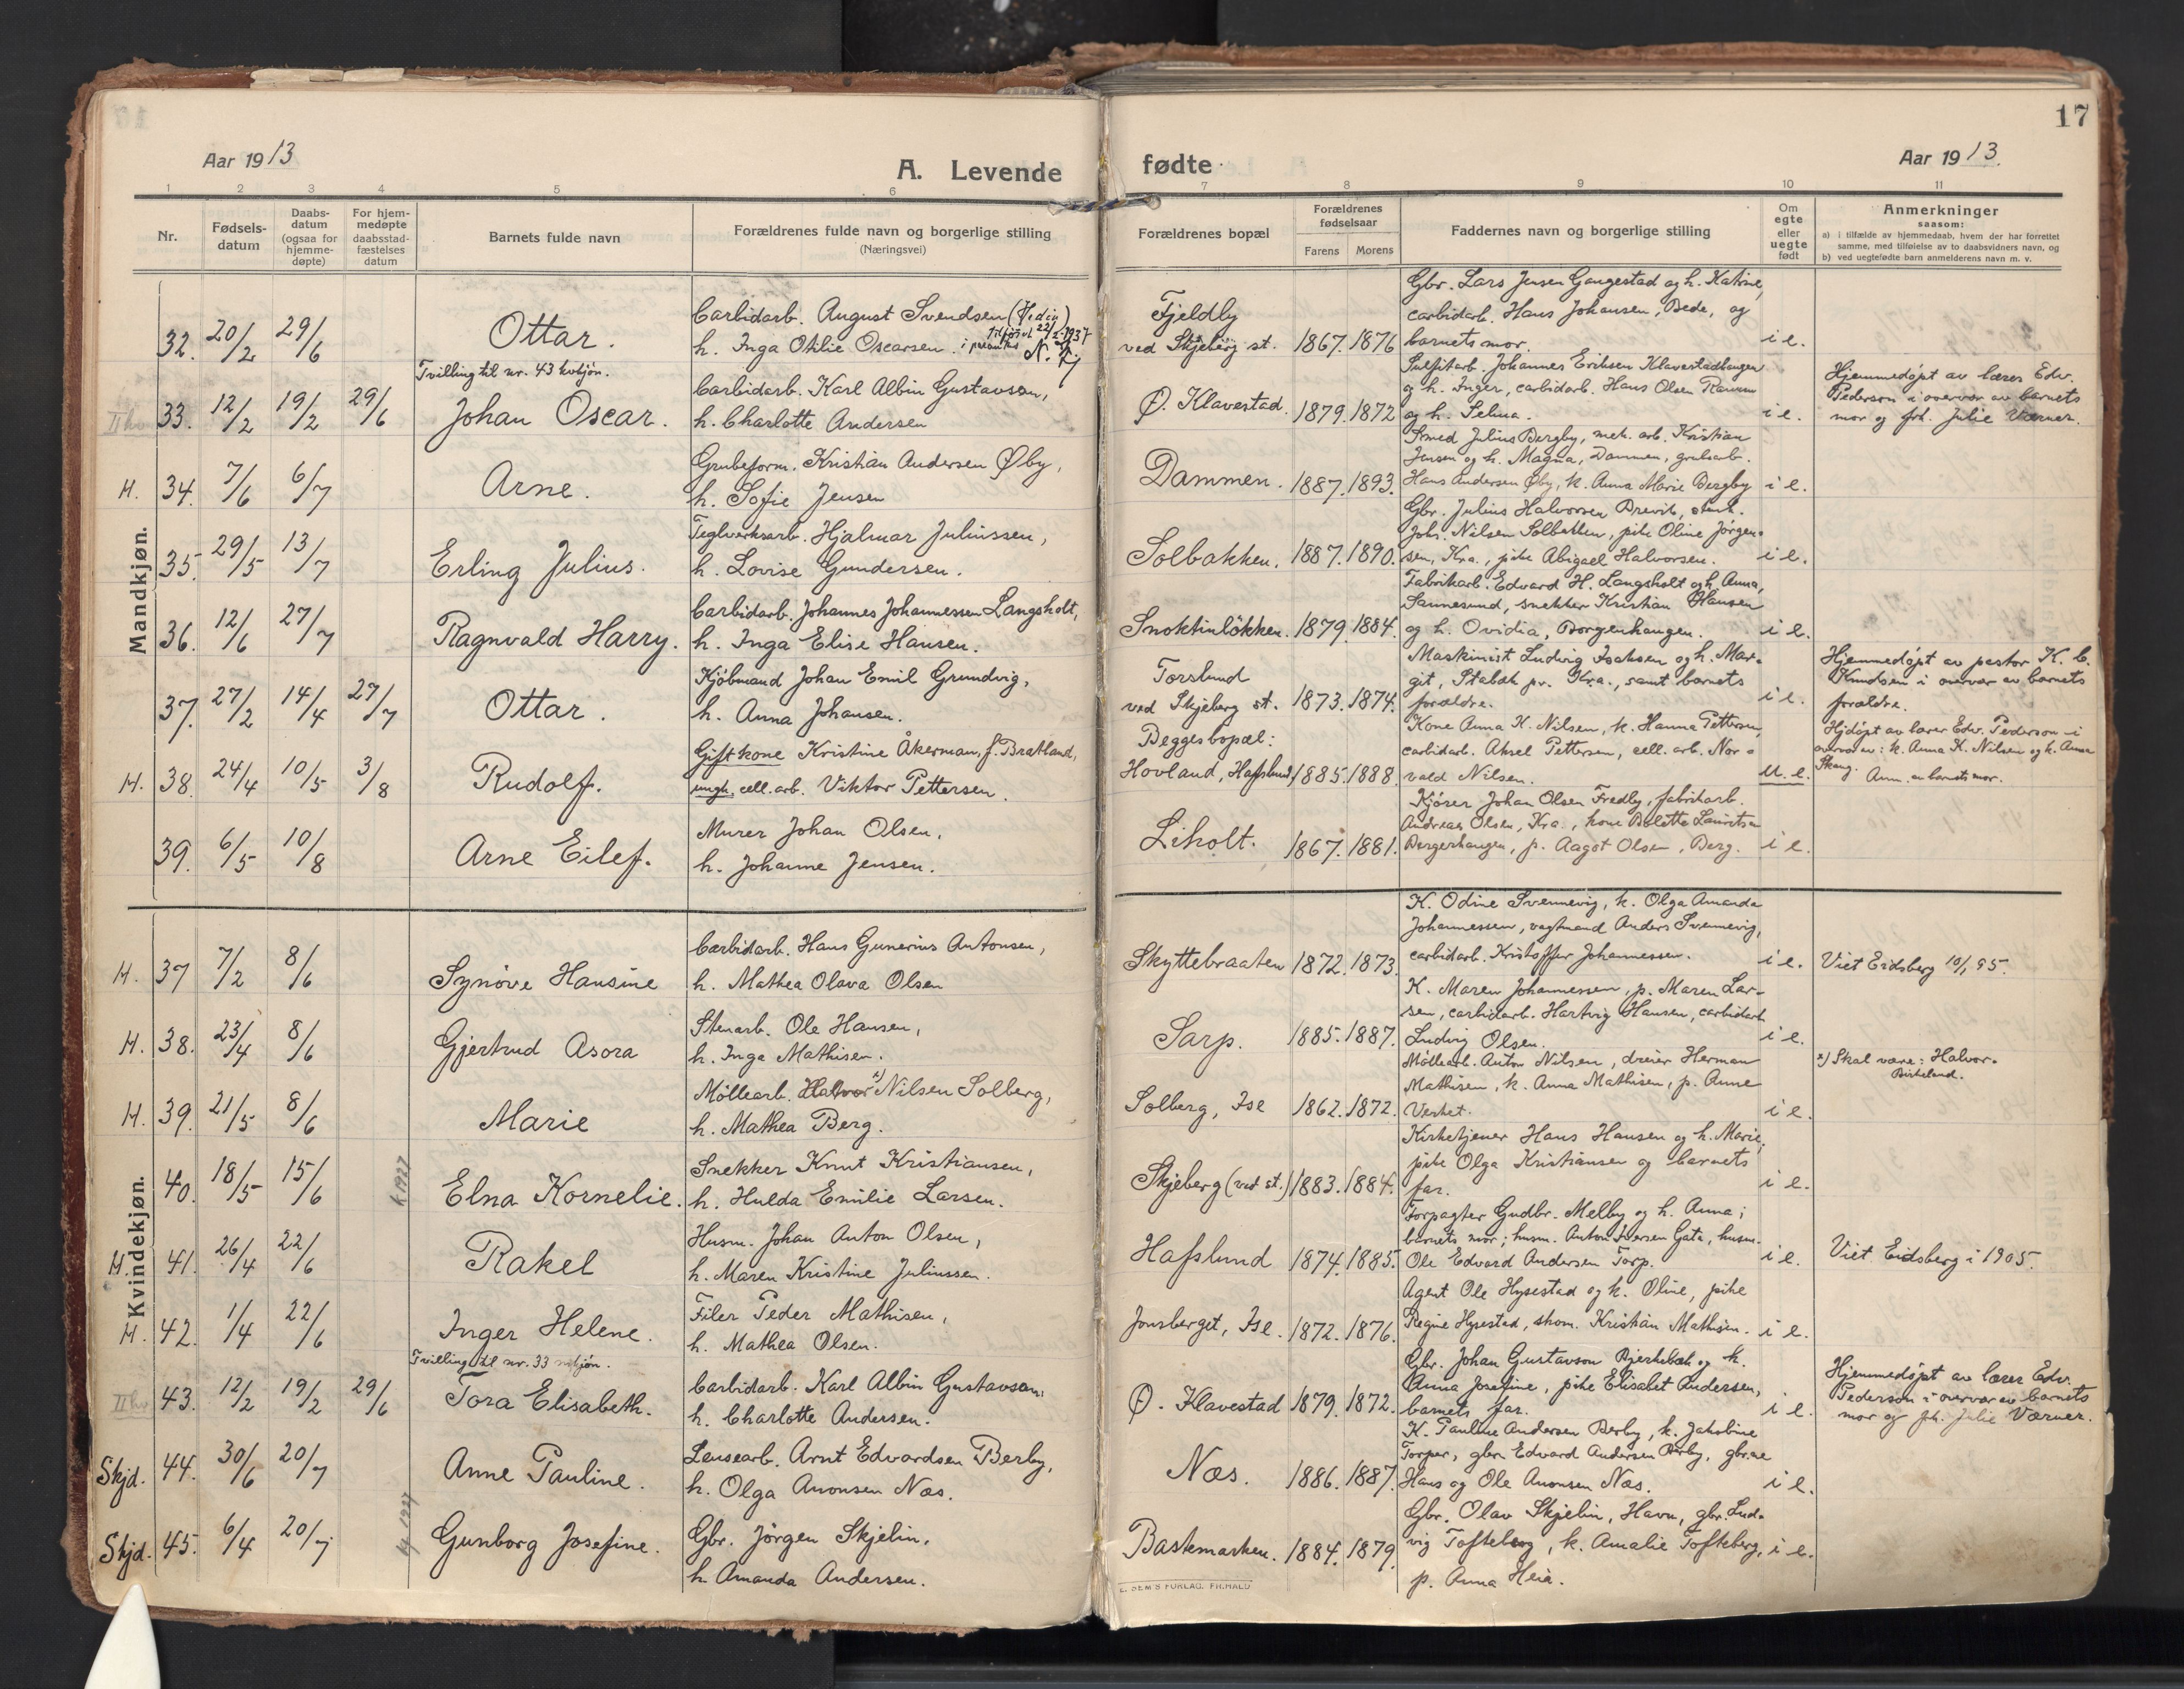 17
Aar 1913
A. Levende fødte
Aar 1913.
1 2 3 4 5 6 7 8 9 10 11
Nr.
Fødsels-
datum
Daabs-
datum
(ogsaa for
hjemme-
døpte)
For hjem-
medøpte
daabsstad-
fæstelses
datum
Barnets fulde navn
Forældrenes fulde navn og borgerlige stilling
(Næringsvei)
Forældrenes bopæl
Forældrenes
fødselsaar
Farens Morens
Faddernes navn og borgerlige stilling
Om
egte
eller
uegte
født
Anmerkninger
saasom:
a) i tilfælde av hjemmedaab, hvem der har forrettet
samme, med tilføielse av to daabsvidners navn, og
b) ved uegtefødte barn anmelderens navn m. v.
Mandkjøn.
32. 20/2 29/6
Ottar.
Carbidarb. August Svendsen (Hedin)
h. Inga Otilie Oscarsen.
Fjeldby
ved Skjeberg st. 1867. 1876
Gbr. Lars Jensen Gangestad og h. Katrine,
carbidarb. Hans Johansen, Bede, og
barnets mor.
i e.
Tvilling til nr. 43 kvkjøn.
33. 12/2 19/2 29/6
Johan Oscar.
Carbidarb. Karl Albin Gustavson,
h. Charlotte Andersen
Ø. Klavestad. 1879. 1872
Sulfitarb. Johannes Eriksen Klavestadhaugen
og h. Inger, carbidarb. Hans Olsen
og h. Selma.
i e.
Hjemmedøpt av lærer Edv.
Pederson i overvær av barnets
mor og frk. Julie Værner.
H. 34. 7/6 6/7
Arne.
Grubeform. Kristian Andersen Øby,
h. Sofie Jensen
Dammen. 1887. 1893.
Smed Julius Bergby, mek. arb. Kristian
Jensen og h. Magna, Dammen, grubearb.
Hans Andersen Øby, k. Anna Marie Bergby
i e.
35. 29/5 13/7
Erling Julius.
Teglverksarb. Hjalmar Juliussen,
h. Lovise Gundersen.
Solbakken. 1887. 1890.
Gbr. Julius Halvorsen Brevik,
Johs. Nilsen Solbakken, pike Oline Jørgen-
sen, Kra., pike Abigael Halvorsen.
i e.
36. 12/6 27/7
Ragnvald Harry.
Carbidarb. Johannes Johannessen Langsholt,
h. Inga Elise Hansen.
Snoktinløkken. 1879. 1884.
Fabrikarb. Edvard H. Langsholt og h. Anna,
Sannesund, snekker Kristian Hansen
og h. Ovidia, Borgenhaugen.
i e.
37. 27/2 14/4 27/7
Ottar.
Kjøbmand Johan Emil Grundvig,
h. Anna Johansen.
Torslund
ved Skjeberg st. 1873. 1874.
Maskinist Ludvig Isaksen og h. Mar-
git, Stabæk pr. Kra., samt barnets
forældre.
i e.
Hjemmedøpt av pastor K. C.
Knudsen i overvær av barnets
forældre.
H. 38. 24/4 10/5 3/8
Rudolf.
Gift kone Kristine Åkerman, f. Bratland,
ungk. cell. arb. Viktor Pettersen.
Begges bopæl:
Hovland, Hafslund 1885. 1888.
Kone Anna K. Nilsen, k. Hanna Pettersen,
carbidarb. Aksel Pettersen, cell. arb. Nor-
vald Nilsen.
u. e.
Hjdøpt av lærer Edv. Pederson i
overvær av: k. Anna K. Nilsen og k. Anna
Skaug. Anm. er barnets mor.
39. 6/5 10/8
Arne Eilef.
Murer Johan Olsen,
h. Johanne Jensen.
Liholt. 1867. 1881.
Kjører Johan Olsen Fredby, fabrikarb.
Andreas Olsen, Kra., kone Bolette Lauritsen
Bergerhaugen, p. Aagot Olsen, Berg.
i e.
Kvindekjøn.
H. 37 7/2 8/6
Synøve Hansine
Carbidarb. Hans Gunerius Antonsen,
h. Mathea Olava Olsen
Skyttebraaten 1872. 1873.
K. Odine Svennevig, k. Olga Amanda
Johannessen, vagtmand Anders Svennevig,
carbidarb. Kristoffer Johannessen.
i e.
Viet Eidsberg 10/1 95.
H. 38. 23/4 8/6
Gjertrud Asora
Stenarb. Ole Hansen,
h. Inga Mathisen.
Sarp. 1885. 1887.
K. Maren Johannessen, p. Maren Lar-
sen, carbidarb. Hartvig Hansen, carbidarb
Ludvig Olsen.
i e.
H. 39. 21/5 8/6
Marie
Møllearb. Halvor x) Nilsen Solberg,
h. Mathea Berg.
Solberg, Ise 1862. 1872.
Møllearb. Anton Nilsen, dreier Herman
Mathisen, k. Anna Mathisen, p. Anne
Verket.
i e.
x) Skal være: Halvor.
Birkeland.
40. 18/5 15/6
k 1927
Elna Kornelie.
Snekker Knut Kristiansen,
h. Hulda Emilie Larsen.
Skjeberg (ved st.) 1883. 1884.
Kirketjener Hans Hansen og h. Marie,
pike Olga Kristiansen og barnets
far.
i e.
H. 41. 26/4 22/6
Rakel
Husm. Johan Anton Olsen,
h. Maren Kristine Juliussen.
Hafslund 1874. 1885.
Forpagter Gudbr. Melby og h. Anna;
barnets mor; husm. Anton Iversen Gata, husm.
Ole Edvard Andersen Torp.
i e.
Viet Eidsberg i 1905.
H. 42. 1/4 22/6
Inger Helene.
Filer Peder Mathisen,
h. Mathea Olsen.
Jonsberget, Ise. 1872. 1876.
Agent Ole Hysestad og k. Oline, pike
Regine Hysestad, skom. Kristian Mathisen.
i e.
Tvilling til nr. 33 mkjøn.
43. 12/2 19/2 29/6
Tora Elisabeth.
Carbidarb. Karl Albin Gustavson,
h. Charlotte Andersen.
Ø. Klavestad 1879. 1872.
Gbr. Johan Gustavson Bjerkebæk og k.
Anna Josefine, pike Elisabet Andersen,
barnets far.
i e.
Hjemmedøpt av lærer Edv.
Pederson i overvær av barnets
mor og frk. Julie Værner.
Skjd. 44. 30/6 20/7
Anne Pauline.
Lensearb. Arnt Edvardsen Berby,
h. Olga Anonsen Næs.
Næs. 1886. 1887.
K. Pauline Andersen Berby, k. Jakobine
Torper, gbr. Edvard Andersen Berby, gbr.ne
Hans og Ole Anonsen Næs.
i e.
Skjd. 45. 6/4 20/7
Gunborg Josefine.
Gbr. Jørgen Skjelin,
h. Amanda Andersen.
Bastemarken. 1884. 1879.
Gbr. Olav Skjelin, Havn, gbr. Lud-
vig Tofteberg, k. Amalie Tofteberg,
p. Anna Heia.
i e.